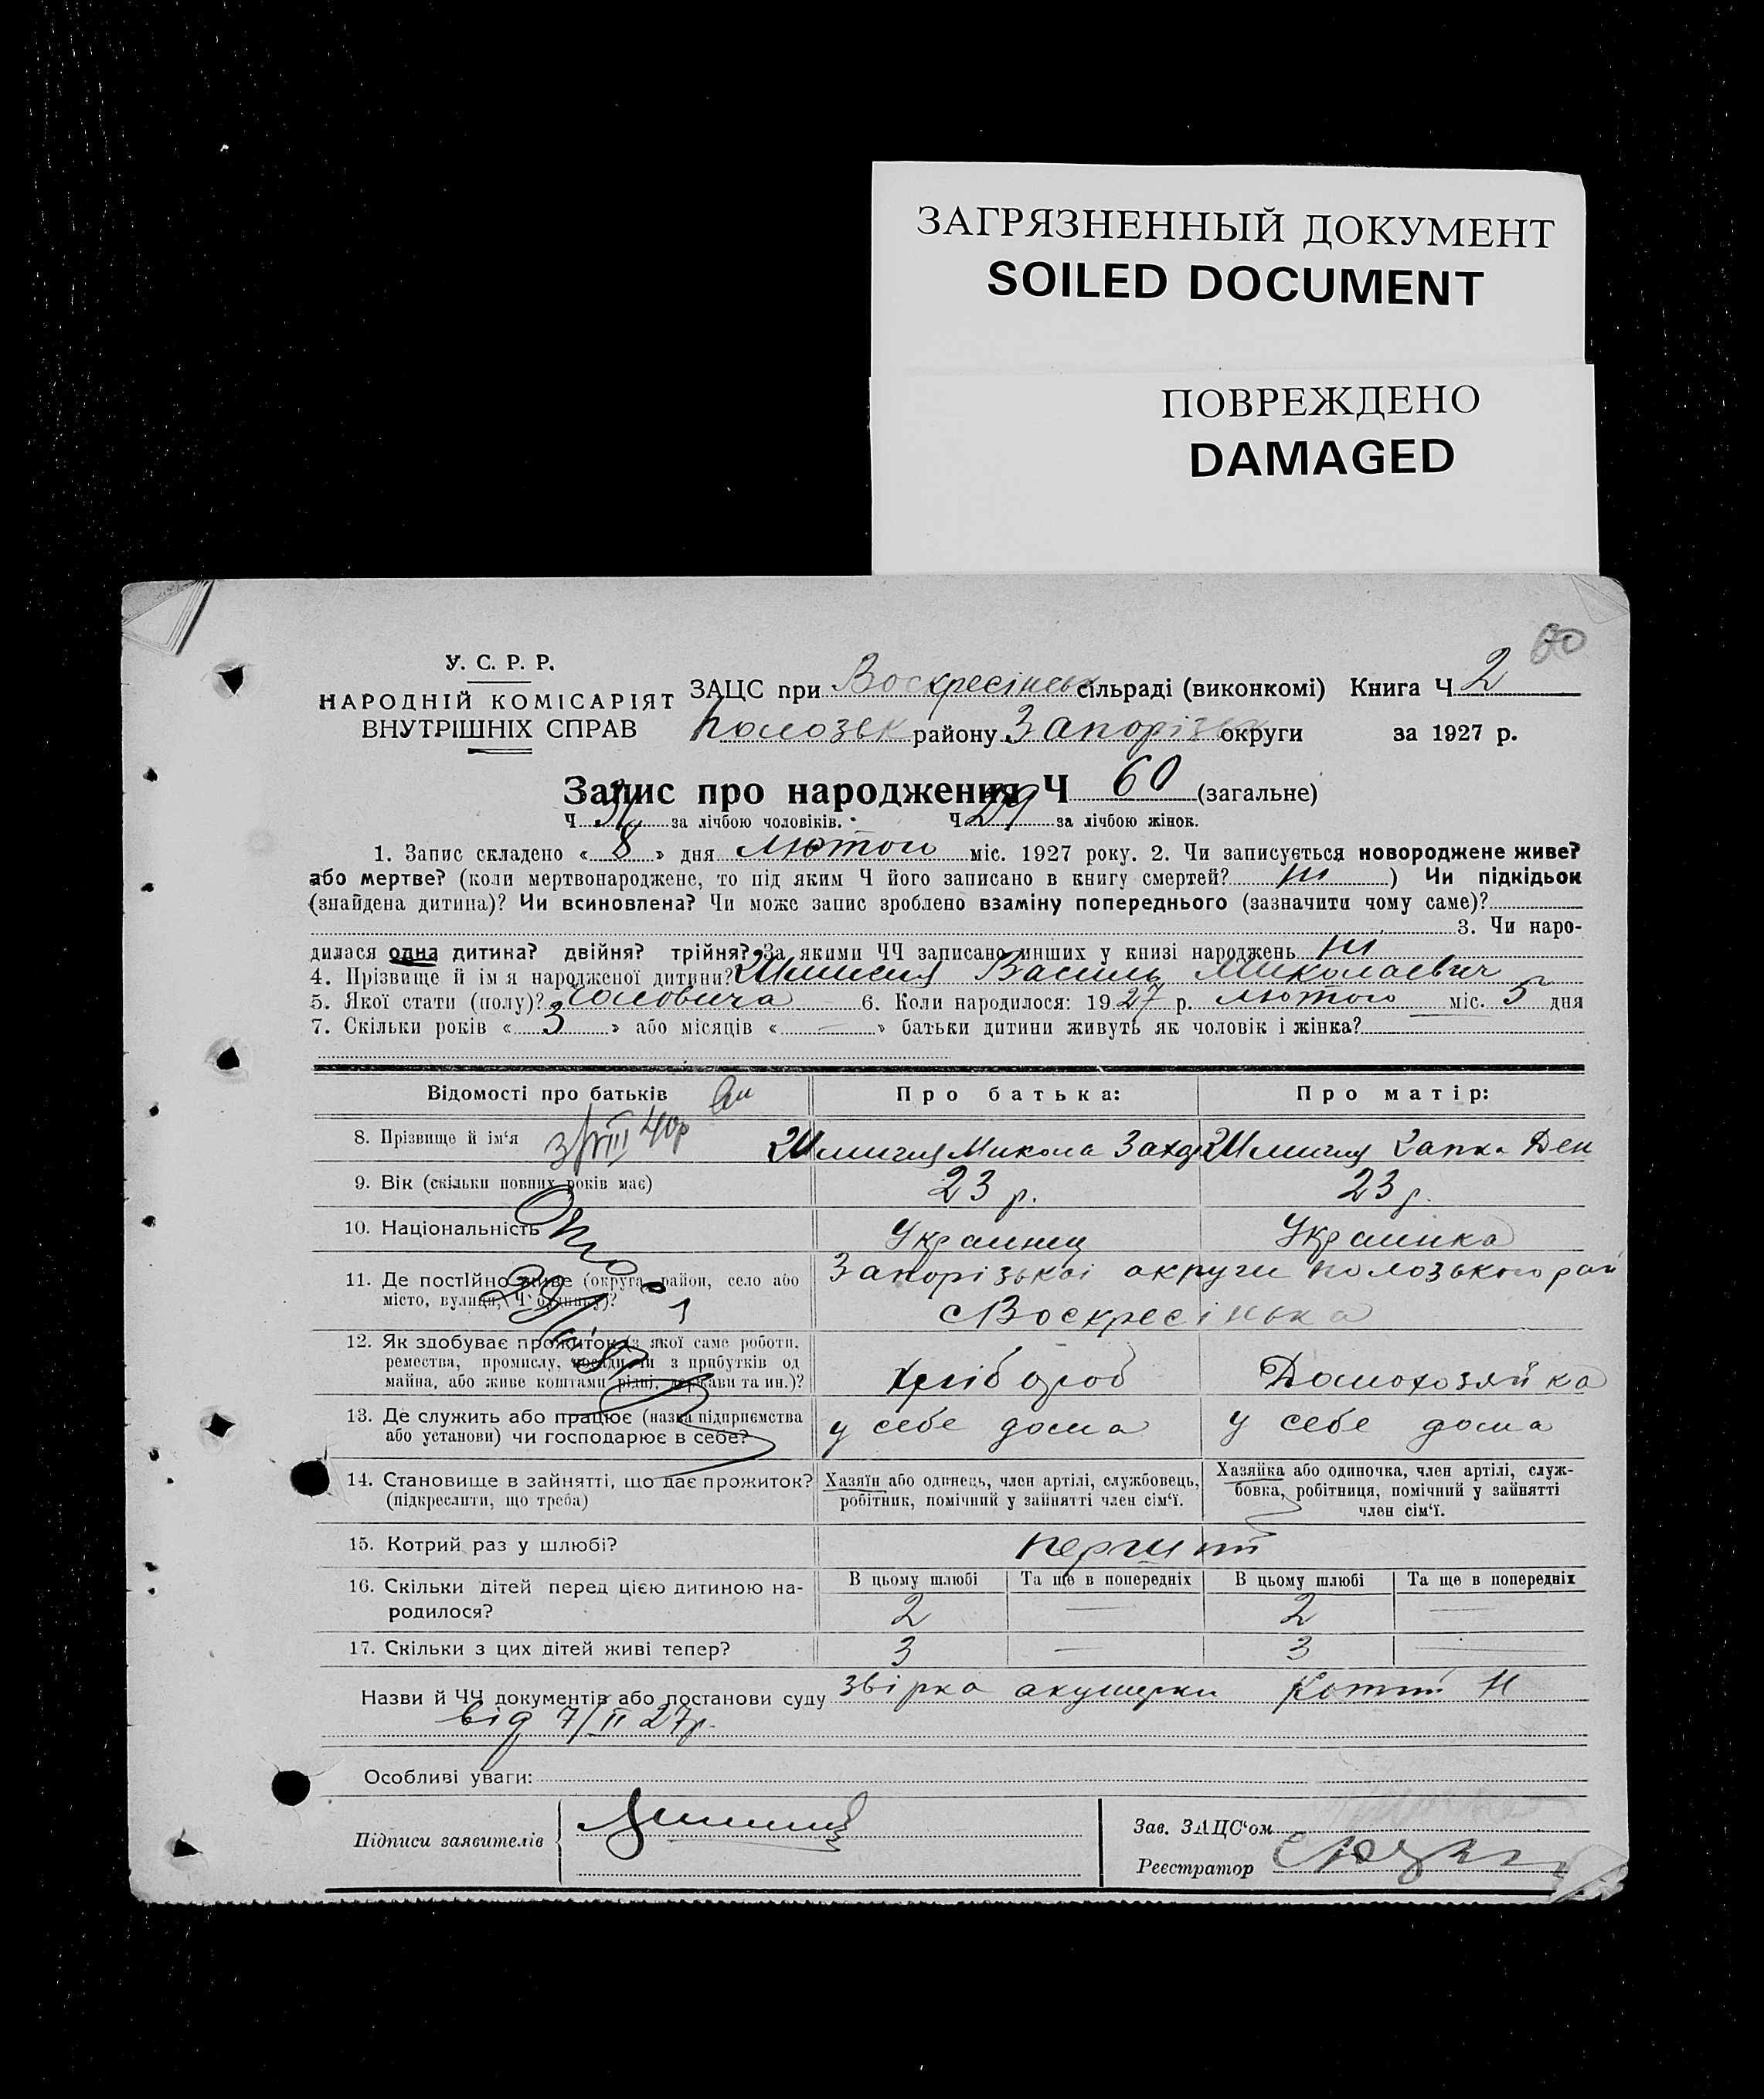 ЗАГРЯЗНЕННЫЙ ДОКУМЕНТ
SOILED DOCUMENT
ПОВРЕЖДЕНО
DAMAGED
60
У. С. Р. Р.
НАРОДНІЙ КОМІСАРІЯТ
ВНУТРІШНІХ СПРАВ
ЗАЦС при Воскресінськ сільраді (виконкомі) Книга Ч 2
Полозьк району Запорізьк округи за 1927 р.
Запис про народження Ч 60 (загальне)
Ч 31 за лічбою чоловіків. Ч 29 за лічбою жінок.
1. Запис складено « 8 » дня Лютого міс. 1927 року. 2. Чи записується новороджене живе?
або мертве? (коли мертвонароджене, то під яким Ч його записано в книгу смертей? ні ) Чи підкідьок
(знайдена дитина)? Чи всиновлена? Чи може запис зроблено взаміну попереднього (зазначити чому саме)?
3. Чи наро-
дилася одна дитина? двійня? трійня? За якими ЧЧ записано инших у книзі народжень ні
4. Прізвище й ім я народженої дитини? Василь Миколаевич
5. Якої стати (полу)? чоловича 6. Коли народилося: 1927 р. лютого міс. 5 дня
7. Скільки років « 3 » або місяців « — » батьки дитини живуть як чоловік і жінка?
Відомості про батьків Про батька: Про матір:
8. Прізвище й ім‘я 3/VIII 40р Микола Захар Ден
9. Вік (скільки повних років має) 23 р. 23 р.
10. Національність Украинец Украинка
11. Де постійно живе (округа, район, село або Запорізької округи Полозького рай
місто, вулиця, Ч будинку)? с Воскресінька
12. Як здобуває прожиток (з якої саме роботи,
ремества, промислу, посади чи з прибутків од
майна, або живе коштами рідні, держави та ин.)? Хлібороб Домохозяйка
13. Де служить або працює (назва підприємства
або установи) чи господарює в себе? у себе дома у себе дома
14. Становище в зайнятті, що дає прожиток?
(підкреслити, що треба)
Хазяїн або одинець, член артілі, службовець,
робітник, помічний у зайнятті член сім‘ї.
Хазяйка або одиночка, член артілі, служ-
бовка, робітниця, помічний у зайнятті
член сім‘ї.
15. Котрий раз у шлюбі? перший
В цьому шлюбі Та ще в попередніх В цьому шлюбі Та ще в попередніх
16. Скільки дітей перед цією дитиною на-
родилося? 2 — 2 —
17. Скільки з цих дітей живі тепер? 3 — 3 —
Назви й ЧЧ документів або постанови суду звірка акушерки
від 7/II 27р.
Особливі уваги:
Підписи заявителів
Зав. ЗАЦС‘ом
Реєстратор